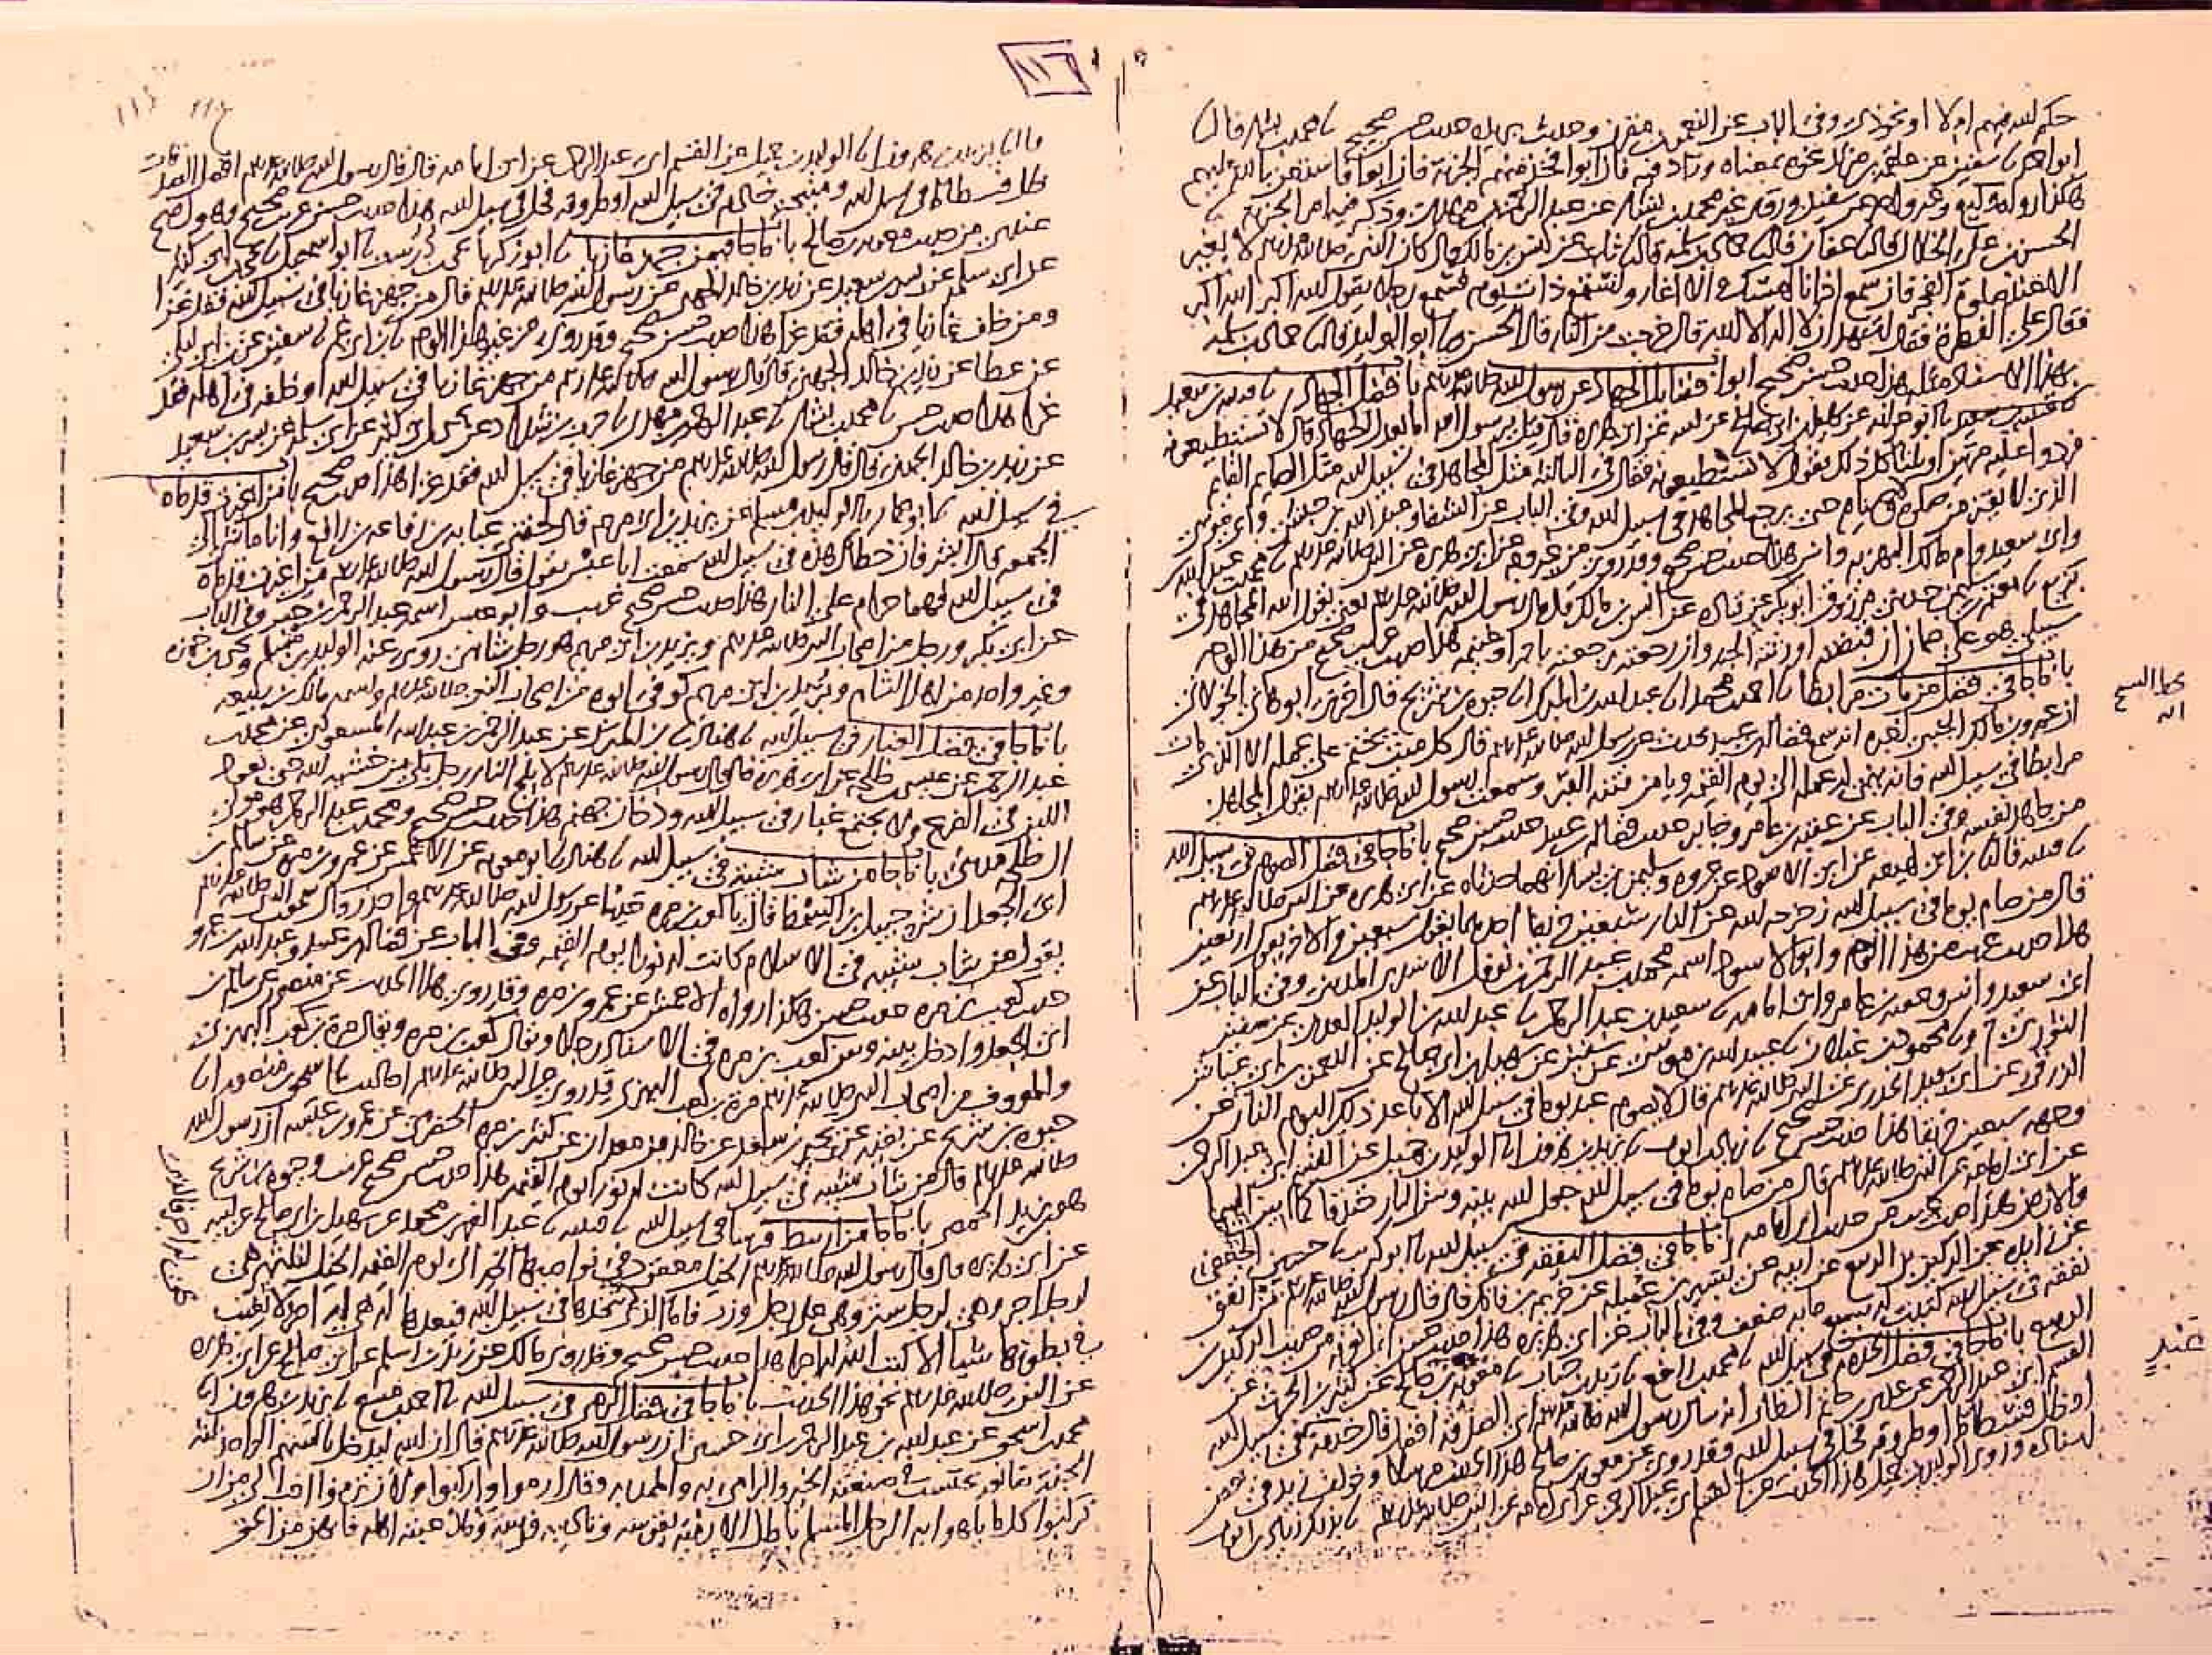 حكم الله فيهم ام لا او نحو ذا وفي الباب عن النعمن بن مقرن وحديث بريده حديث حسن صحيح نا محمد بن بشار قال نا
ابو احمد نا سفين عن علقمه بن مرثد نحوه بمعناه وزاد فيه فان ابوا فخذ منهم الجزية فان ابوا فاستعن بالله عليهم
هكذا رواه وكيع وغير واحد عن سفين وروى غير محمد بن بشار عن عبد الرحمن بن مهدي وذكر فيه امر الجزية
الحسن بن علي الخلال قال نا عفان قال نا حماد بن سلمه قال نا ثابت عن انس بن مالك قال كان النبي صلى الله عليه وسلم لا يغير
الا عند صلوة الفجر فان سمع اذانا امسك والا اغار واستمع ذات يوم فسمع رجلا يقول الله اكبر الله اكبر
فقال على الفطرة فقال اشهد ان لا اله الا الله قال خرجت من النار قال الحسن نا ابو الوليد قال نا حماد بن سلمه
بهذا الاسناد مثله هذا حديث حسن صحيح ابواب فضايل الجهاد عن رسول الله صلى الله عليه وسلم باب فضل الجهاد نا قتيبه بن سعيد
نا ابو عوانه عن سهيل بن ابي صالح عن ابيه عن ابي هريره قال قيل يرسول الله ما يعدل الجهاد قال لا تستطيعونه
فردوا عليه مرتين او ثلثا كل ذلك يقول لا تستطيعونه فقال في الثالثه مثل المجاهد في سبيل الله مثل الصايم القايم
الذي لا يفتر من صلوة ولا صيام حتى يرجع المجاهد في سبيل الله وفي الباب عن الشفا وعبد الله بن حبشي وابي موسى
وابي سعيد وام مالك البهزيه وانس هذا حديث حسن صحيح وقد روي من غير وجه عن ابي هريره عن النبي صلى الله عليه وسلم نا محمد بن عبد الله بن
بزيع نا معتمر بن سليمن حدثني مرزوق ابو بكر عن قتاده عن انس بن مالك قال قال رسول الله صلى الله عليه وسلم يعني يقول الله المجاهد في
سبيلي هو علي ضامن ان قبضته اورثته الجنه وان رجعته رجعته باجر او غنيمه هذا حديث غريب صحيح من هذا الوجه
باب ما جا في فضل من مات مرابطا نا احمد بن محمد انا عبد الله بن المبارك انا حيوه بن شريح قال اخبرني ابو هاني الخولاني
ان عمرو بن مالك الجنبي اخبره انه سمع فضاله بن عبيد يحدث عن رسول الله صلى الله عليه وسلم قال كل ميت يختم على عمله الا الذي مات
مرابطا في سبيل الله فانه ينمى له عمله الى يوم القيمه ويامن فتنه القبر وسمعت رسول الله صلى الله عليه وسلم يقول المجاهد
من جاهد نفسه وفي الباب عن عقبه بن عامر وجابر حديث فضاله بن عبيد حديث حسن صحيح باب ما جا في فضل الصوم في سبيل الله
نا قتيبه قال نا ابن لهيعه عن ابي الاسود عن عروه وسليمن بن يسار انهما حدثاه عن ابي هريره عن النبي صلى الله عليه وسلم
قال من صام يوما في سبيل الله زحزحه الله عن النار سبعين خريفا احدهما يقول سبعين والاخر يقول اربعين
هذا حديث غريب من هذا الوجه وابو الاسود اسمه محمد بن عبد الرحمن بن نوفل الاسدي المديني وفي الباب عن
ابي سعيد وانس وعقبه بن عامر وابي امامه نا سعيد بن عبد الرحمن نا عبد الله بن الوليد العدني عن سفين
الثوري ح ونا محمود بن غيلان نا عبيد الله بن موسى عن سفين عن سهيل بن ابي صالح عن النعمن بن ابي عياش
الزرقي عن ابي سعيد الخدري عن النبي صلى الله عليه وسلم قال لا يصوم عبد يوما في سبيل الله الا باعد ذلك اليوم النار عن
وجهه سبعين خريفا هذا حديث حسن صحيح نا زياد بن ايوب نا يزيد بن هرون انا الوليد بن جميل عن القسم ابي عبد الرحمن
عن ابي امامه عن النبي صلى الله عليه وسلم قال من صام يوما في سبيل الله جعل الله بينه وبين النار خندقا كما بين السما
والارض هذا حديث غريب من حديث ابي امامه باب ما جا في فضل النفقه في سبيل الله نا ابو كريب نا حسين الجعفي
عن زايده عن الركين بن الربيع عن ابيه عن يسير بن عميله عن خريم بن فاتك قال قال رسول الله صلى الله عليه وسلم من انفق
نفقه في سبيل الله كتبت له بسبع مايه ضعف وفي الباب عن ابي هريره هذا حديث حسن انما نعرفه من حديث الركين بن
الربيع باب ما جا في فضل الخدمه في سبيل الله نا محمد بن رافع نا زيد بن حباب نا معويه بن صالح عن كثير بن الحرث عن
القسم ابي عبد الرحمن عن عدي بن حاتم الطاي انه سال رسول الله صلى الله عليه وسلم اي الصدقه افضل قال خدمه عبد في سبيل الله
او ظل فسطاط او طروقه فحل في سبيل الله وقد روي عن معويه بن صالح هذا الحديث مرسلا وخولف زيد في بعض
اسناده وروى الوليد بن جميل هذا الحديث عن القسم ابي عبد الرحمن عن ابي امامه عن النبي صلى الله عليه وسلم نا بذلك زياد بن ايوب
عبد
١١٦
قال نا يزيد بن هرون انا الوليد بن جميل عن القسم ابي عبد الرحمن عن ابي امامه قال قال رسول الله صلى الله عليه وسلم افضل الصدقات
ظل فسطاط في سبيل الله ومنيحه خادم في سبيل الله او طروقه فحل في سبيل الله هذا حديث حسن غريب صحيح وهو اصح
عندي من حديث معويه بن صالح باب ما جا فيمن جهز غازيا نا ابو زكريا يحيى بن درست نا ابو اسمعيل نا يحيى بن ابي كثير
عن ابي سلمه عن بسر بن سعيد عن زيد بن خالد الجهني عن رسول الله صلى الله عليه وسلم قال من جهز غازيا في سبيل الله فقد غزا
ومن خلف غازيا في اهله فقد غزا هذا حديث حسن صحيح وقد روي من غير هذا الوجه نا ابن ابي عمر نا سفين عن ابن ابي ليلى
عن عطا عن زيد بن خالد الجهني قال قال رسول الله صلى الله عليه وسلم من جهز غازيا في سبيل الله او خلفه في اهله فقد
غزا هذا حديث حسن نا محمد بن بشار نا عبد الرحمن بن مهدي نا حرب بن شداد عن يحيى بن ابي كثير عن ابي سلمه عن بسر بن سعيد
عن زيد بن خالد الجهني قال قال رسول الله صلى الله عليه وسلم من جهز غازيا في سبيل الله فقد غزا هذا حديث صحيح باب من اغبرت قدماه
في سبيل الله نا ابو عمار نا الوليد بن مسلم عن يزيد بن ابي مريم قال لحقني عبايه بن رفاعه بن رافع وانا ماش الى
الجمعه قال ابشر فان خطاك هذه في سبيل الله سمعت ابا عبس يقول قال رسول الله صلى الله عليه وسلم من اغبرت قدماه
في سبيل الله فهما حرام على النار هذا حديث حسن صحيح غريب وابو عبس اسمه عبد الرحمن بن جبر وفي الباب
عن ابي بكر ورجل من اصحاب النبي صلى الله عليه وسلم ويزيد بن ابي مريم هو رجل شامي روى عنه الوليد بن مسلم ويحيى بن حمزه
وغير واحد من اهل الشام وبريد بن ابي مريم كوفي ابوه من اصحاب النبي صلى الله عليه وسلم واسمه مالك بن ربيعه
باب ما جا في فضل الغبار في سبيل الله نا هناد نا ابن المبارك عن عبد الرحمن بن عبد الله المسعودي عن محمد بن
عبد الرحمن عن عيسى بن طلحه عن ابي هريره قال قال رسول الله صلى الله عليه وسلم لا يلج النار رجل بكى من خشيه الله حتى يعود
اللبن في الضرع ولا يجتمع غبار في سبيل الله ودخان جهنم هذا حديث حسن صحيح ومحمد بن عبد الرحمن هو مولى
ال طلحه مديني باب ما جا من شاب شيبه في سبيل الله نا هناد نا ابو معويه عن الاعمش عن عمرو بن مره عن سالم بن
ابي الجعد ان شرحبيل بن السمط قال يا كعب بن مره حدثنا عن رسول الله صلى الله عليه وسلم واحذر قال سمعت النبي صلى الله عليه وسلم
يقول من شاب شيبه في الاسلام كانت له نورا يوم القيمه وفي الباب عن فضاله بن عبيد وعبد الله بن عمرو
حديث كعب بن مره حديث حسن هكذا رواه الاعمش عن عمرو بن مره وقد روي هذا الحديث عن منصور عن سالم بن
ابي الجعد وادخل بينه وبين كعب بن مره في الاسناد رجلا ويقال كعب بن مره ويقال مره بن كعب البهزي
والمعروف من اصحاب النبي صلى الله عليه وسلم مره بن كعب البهزي قد روى عن النبي صلى الله عليه وسلم احاديث نا اسحق بن منصور انا
حيوه بن شريح عن بقيه عن بحير بن سعد عن خالد بن معدان عن كثير بن مره الحضرمي عن عمرو بن عبسه ان رسول الله
صلى الله عليه وسلم قال من شاب شيبه في سبيل الله كانت له نورا يوم القيمه هذا حديث حسن صحيح غريب وحيوه بن شريح
هو ابن يزيد الحمصي باب ما جا من ارتبط فرسا في سبيل الله نا قتيبه نا عبد العزيز بن محمد عن سهيل بن ابي صالح عن ابيه
عن ابي هريره قال قال رسول الله صلى الله عليه وسلم الخيل معقود في نواصيها الخير الى يوم القيمه الخيل لثلثه هي
لرجل اجر وهي لرجل ستر وهي على رجل وزر فاما الذي يتخذها في سبيل الله فيعدها له هي له اجر لا يغيب
في بطونها شيا الا كتب الله له اجرا هذا حديث حسن صحيح وقد روى مالك عن زيد بن اسلم عن ابي صالح عن ابي هريره
عن النبي صلى الله عليه وسلم نحو هذا الحديث باب ما جا في فضل الرمي في سبيل الله نا احمد بن منيع نا يزيد بن هرون انا
محمد بن اسحق عن عبد الله بن عبد الرحمن بن ابي حسين ان رسول الله صلى الله عليه وسلم قال ان الله ليدخل بالسهم الواحد ثلثه
الجنه صانعه يحتسب في صنعته الخير والرامي به والممد به وقال ارموا واركبوا ولان ترموا احب الي من ان
تركبوا كل ما يلهو به الرجل المسلم باطل الا رميه بقوسه وتاديبه فرسه وملاعبته اهله فانهن من الحق